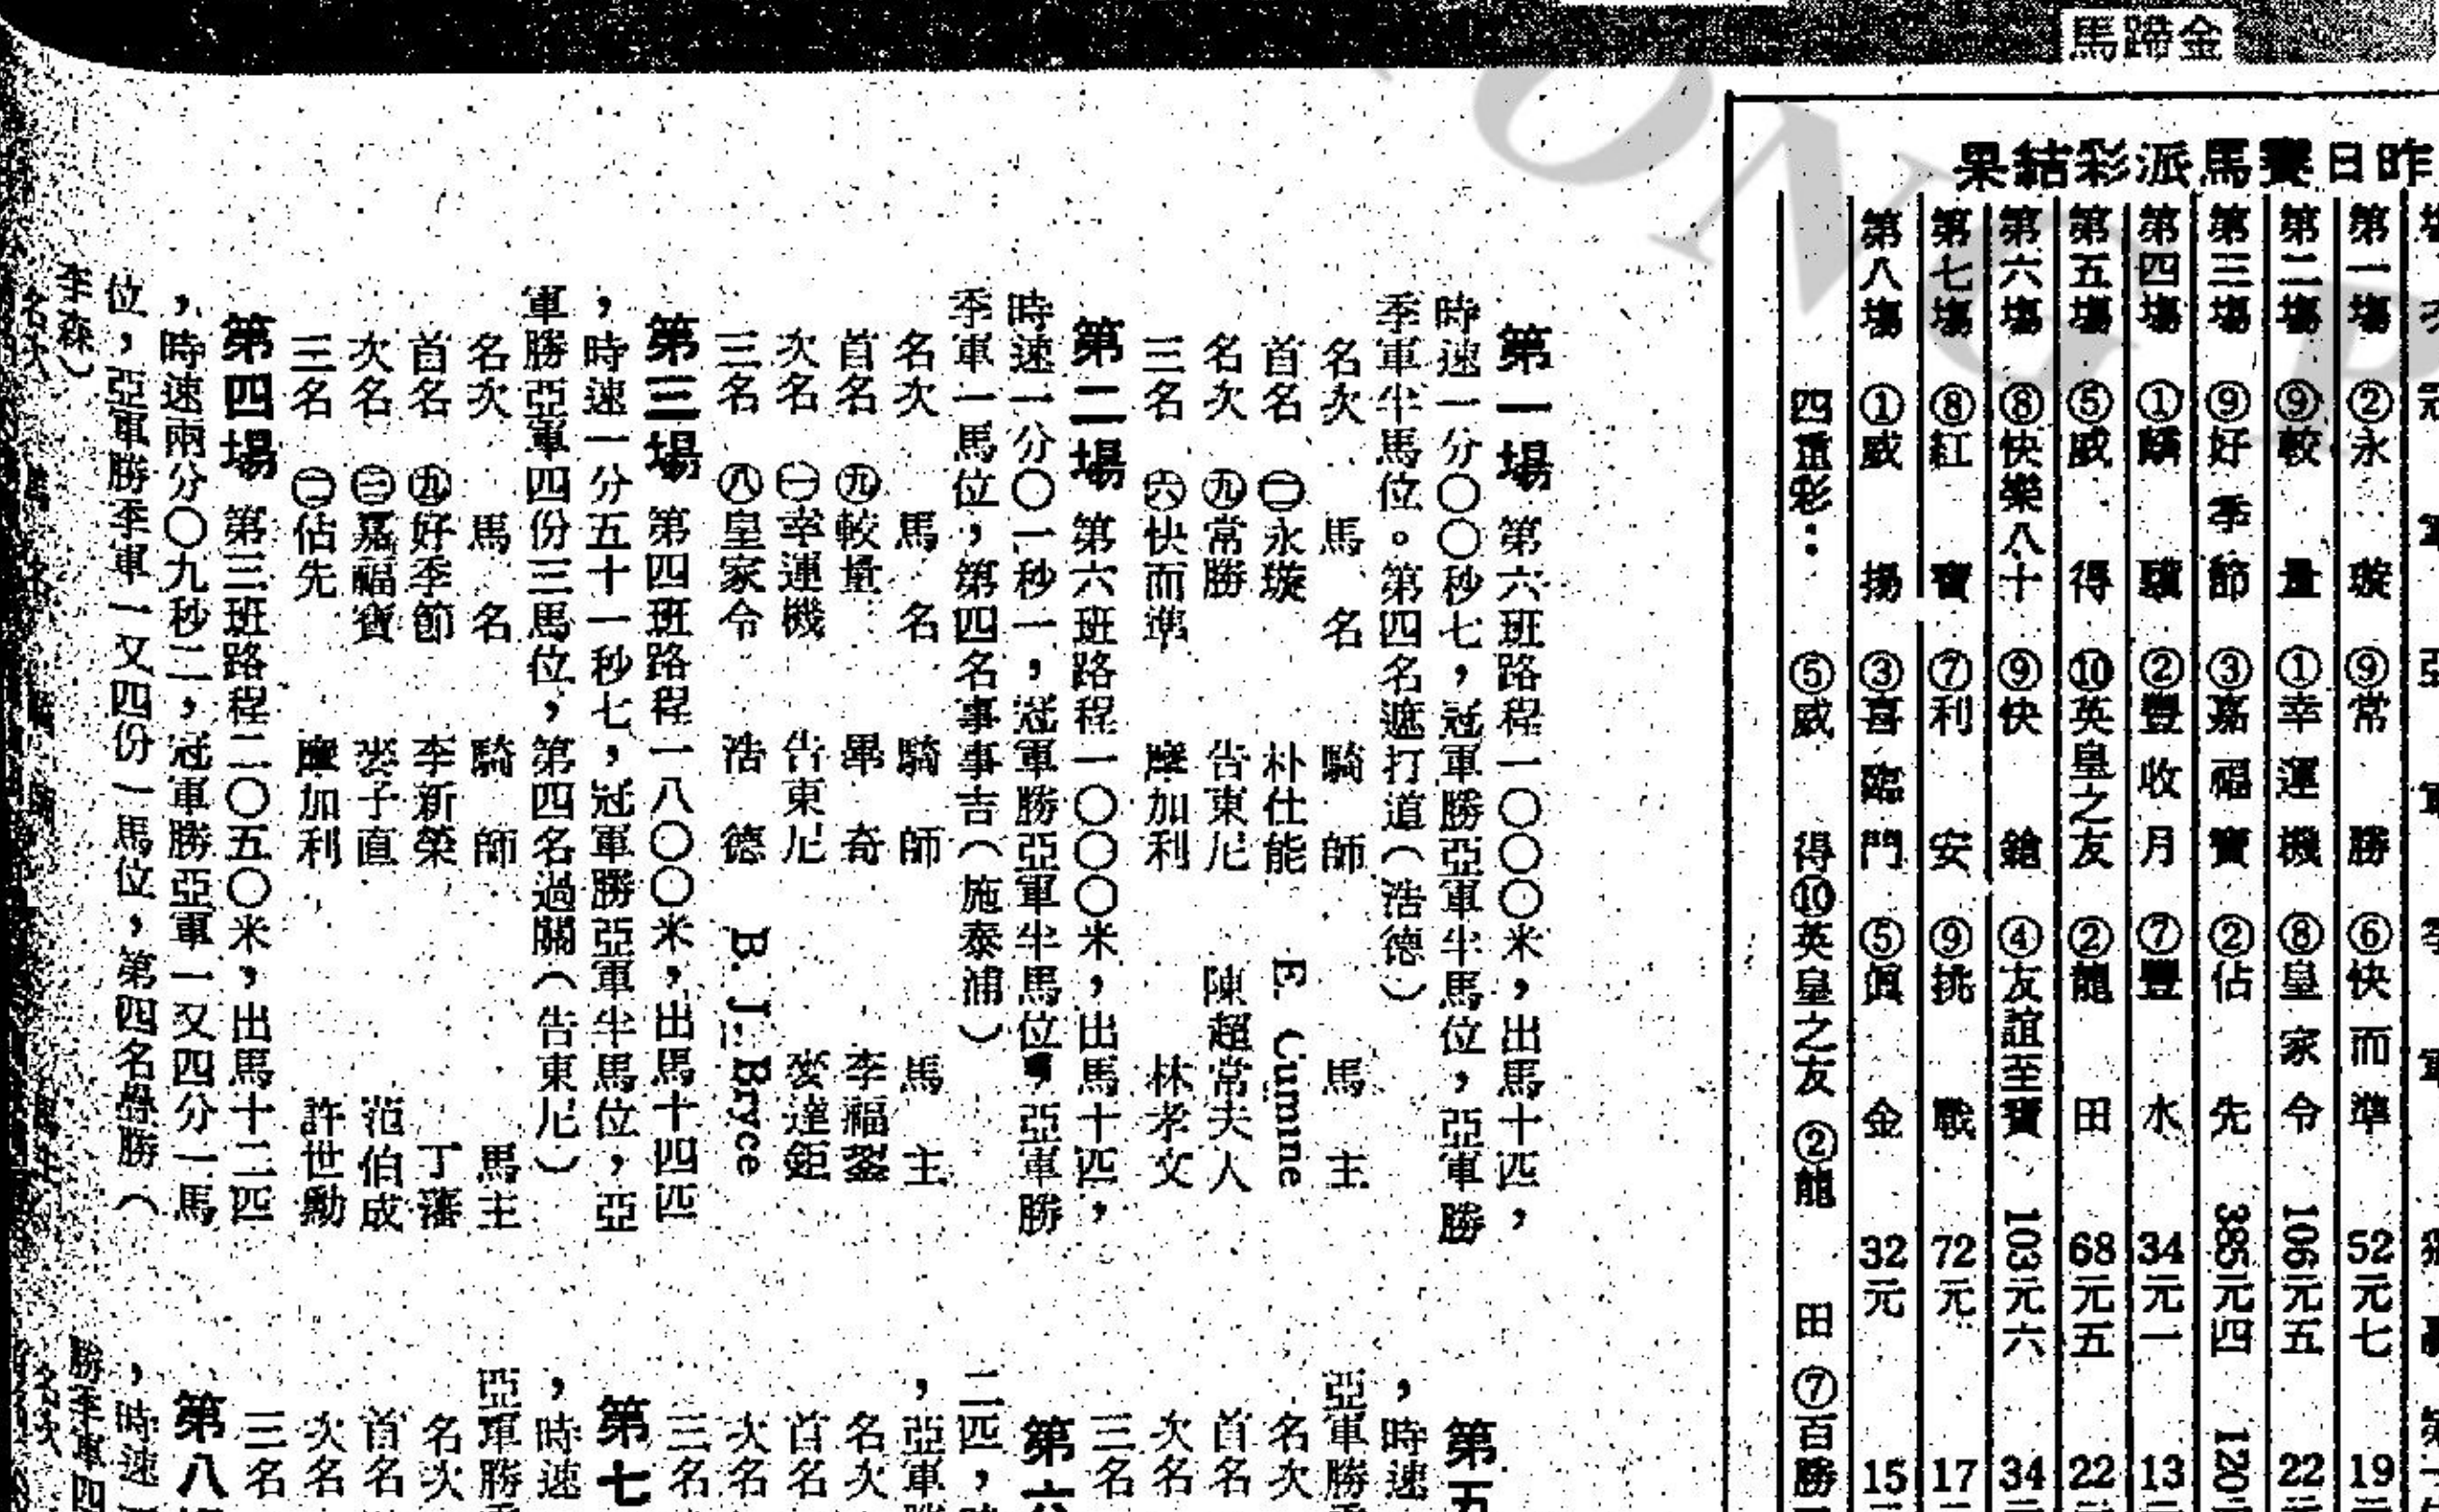 金蹄馬
昨日賽馬派彩結果
第一場 ②永璇 ⑨常勝 ⑥快而準 52元七 19
第二場 ⑨較量 ①幸運機 ⑧皇家令 106元五 22
第三場 ⑨好季節 ③嘉福寶 ②佔先 385元四 120
第四場 ①驥 ②豐收月 ⑦豐水 34元一 13
第五場 ⑤威得 ⑩英皇之友 ②龍田 68元五 22
第六場 ⑧快樂八十 ⑨快鎗 ④友誼至寶 103元六 34
第七場 ⑧紅寶 ⑦利安 ⑨挑戰 72元 17
第八場 ①威揚 ③喜臨門 ⑤眞金 32元 15
四重彩： ⑤威得⑩英皇之友②龍田⑦百勝
第一場 第六班路程一〇〇〇米，出馬十匹，
時速一分〇〇秒七，冠軍勝亞軍半馬位，亞軍勝
季軍半馬位。第四名遮打道（浩德）
名次 馬名 騎師 馬主
首名 ㊁永璇 朴仕能 E. Cumine
名次 ㊈常勝 告東尼 陳超常夫人
三名 ㊅快而準 摩加利 林孝文
第二場 第六班路程一〇〇〇米，出馬十匹，
時速一分〇一秒一，冠軍勝亞軍半馬位，亞軍勝
季軍一馬位，第四名事事吉（施泰浦）
名次 馬名 騎師 馬主
首名 ㊈較量 畢奇 李福鋆
次名 ㊀幸運機 告東尼 麥達鉅
三名 ㊇皇家令 浩德 B. J. Bryce
第三場 第四班路程一八〇〇米，出馬十四匹
，時速一分五十一秒七，冠軍勝亞軍半馬位，亞
軍勝亞軍四份三馬位，第四名過關（告東尼）
名次 馬名 騎師 馬主
首名 ㊈好季節 李新榮 丁藩
次名 ㊂嘉福寶 麥子直 范伯成
三名 ㊁佔先 摩加利 許世勳
第四場 第三班路程二〇五〇米，出馬十二匹
，時速兩分〇九秒二，冠軍勝亞軍一又四分一馬
位，亞軍勝季軍一又四份一馬位，第四名勝（
李森）
名次
第五
，時速
亞軍勝
名次
首名
次名
三名
第六
二匹，
，亞軍
名次
首名
次名
三名
第七
，時速
亞軍勝
名次
首名
次名
三名
第八
，時速
勝季軍四
名次